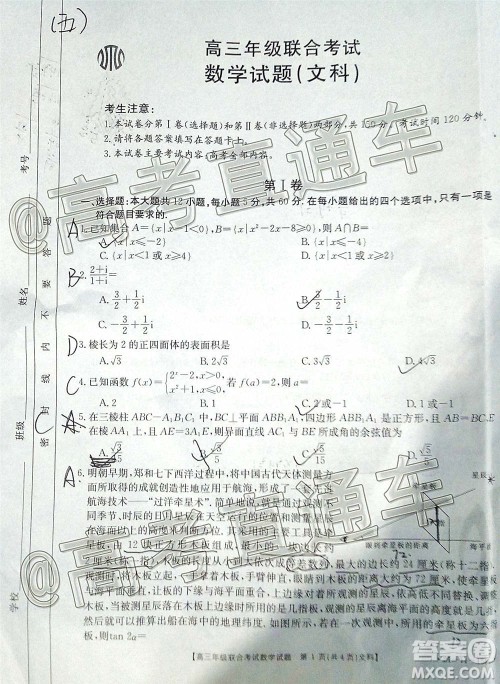 (五)
高三年级联合考试
数学试题(文科)
考生注意:
1.本试卷分第Ⅰ卷(选择题)和第Ⅱ卷(非选择题)两部分,共150分。考试时间120分钟。
2.请将各题答案填写在答题卡上。
3.本试卷主要考试内容:高考全部内容。
第Ⅰ卷
一、选择题:本大题共12小题,每小题5分,共60分。在每小题给出的四个选项中,只有一项是
符合题目要求的.
A 1.已知集合A={x|x-1<0},B={x|x²-2x-8≥0},则A∩B=
A.{x|x≤-2} B.{x|
C.{x|x<1或x≥4} D.{x|x<
B 2. (2+i)/(1+i)=
A. 3/2+1/2i B. 3/2-1/2i
C. -3/2+1/2i D. -3/2-1/2i
D 3.棱长为2的正四面体的表面积是
A.√3 B.2√3 C.3√3 D.4√3
C 4.已知函数f(x)={2ˣ-2,x>0, x²+1,x≤0, 若f(a)=2,则a=
A.2 B.1 C.2或-1 D.1或-1
A 5.在三棱柱ABC-A₁B₁C₁中,BC⊥平面ABB₁A₁,四边形ABB₁A₁是正方形,且AB=BC,E
在棱AA₁上,且AE=
,则异面直线AC₁与BE所成角的余弦值为
A. B. C. D.
A 6.明朝早期,郑和七下西洋过程中,将中国古代天体测量方
面所取得的成就创造性地应用于航海,形成了一套先进的
航海技术——“过洋牵星术”.简单地说,就是通过观测不
同季节、时辰的日月星辰在天空运行的位置和测量星辰在
海面以上的高度来判断方位.其采用的主要工具是牵
星板,由12块正方形木板组成,最小的一块边长约2厘米
(称一指),木板的长度从小到大依次成等差数列,最大的边长约24厘米(称十二指).
观测时,将木板立起,一手拿着木板,手臂伸直,眼睛到木板的距离大约为72厘米,使牵星板
与海平面垂直,让板的下缘与海平面重合,上边缘对着所观测的星辰,依高低不同替换、调整
木板,当被测星辰落在木板上边缘时所用的是几指板,观测的星辰离海平面的高度就是几
指,然后就可以推算出船在海中的地理纬度.如图所示,若在一次观测中,所用的牵星板为六
指板,则tan 2α=
星辰
牵星板
眼到牵星板的距离
海平面
72
12
学校
班级
姓名
考号
密 封 线 内 不 要 答 题
【高三年级联合考试数学试题 第1页(共4页)文科】
@高考直通车
@高考直通车
答案圈
MXQE.COM